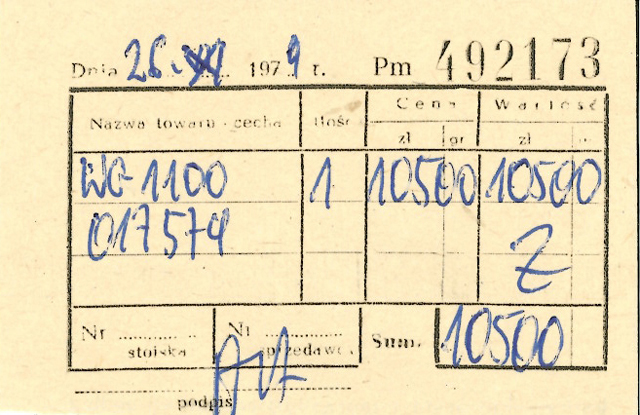 Dnia 26. XII 1979 r. Pm 492173
Nazwa towaru - cecha Ilość Cena Wartość
zł gr zł
WG-1100 1 10500 10500
017574
Z
Nr ............ Nr ............ Sum. 10500
stoiska sprzedawc.
podpis